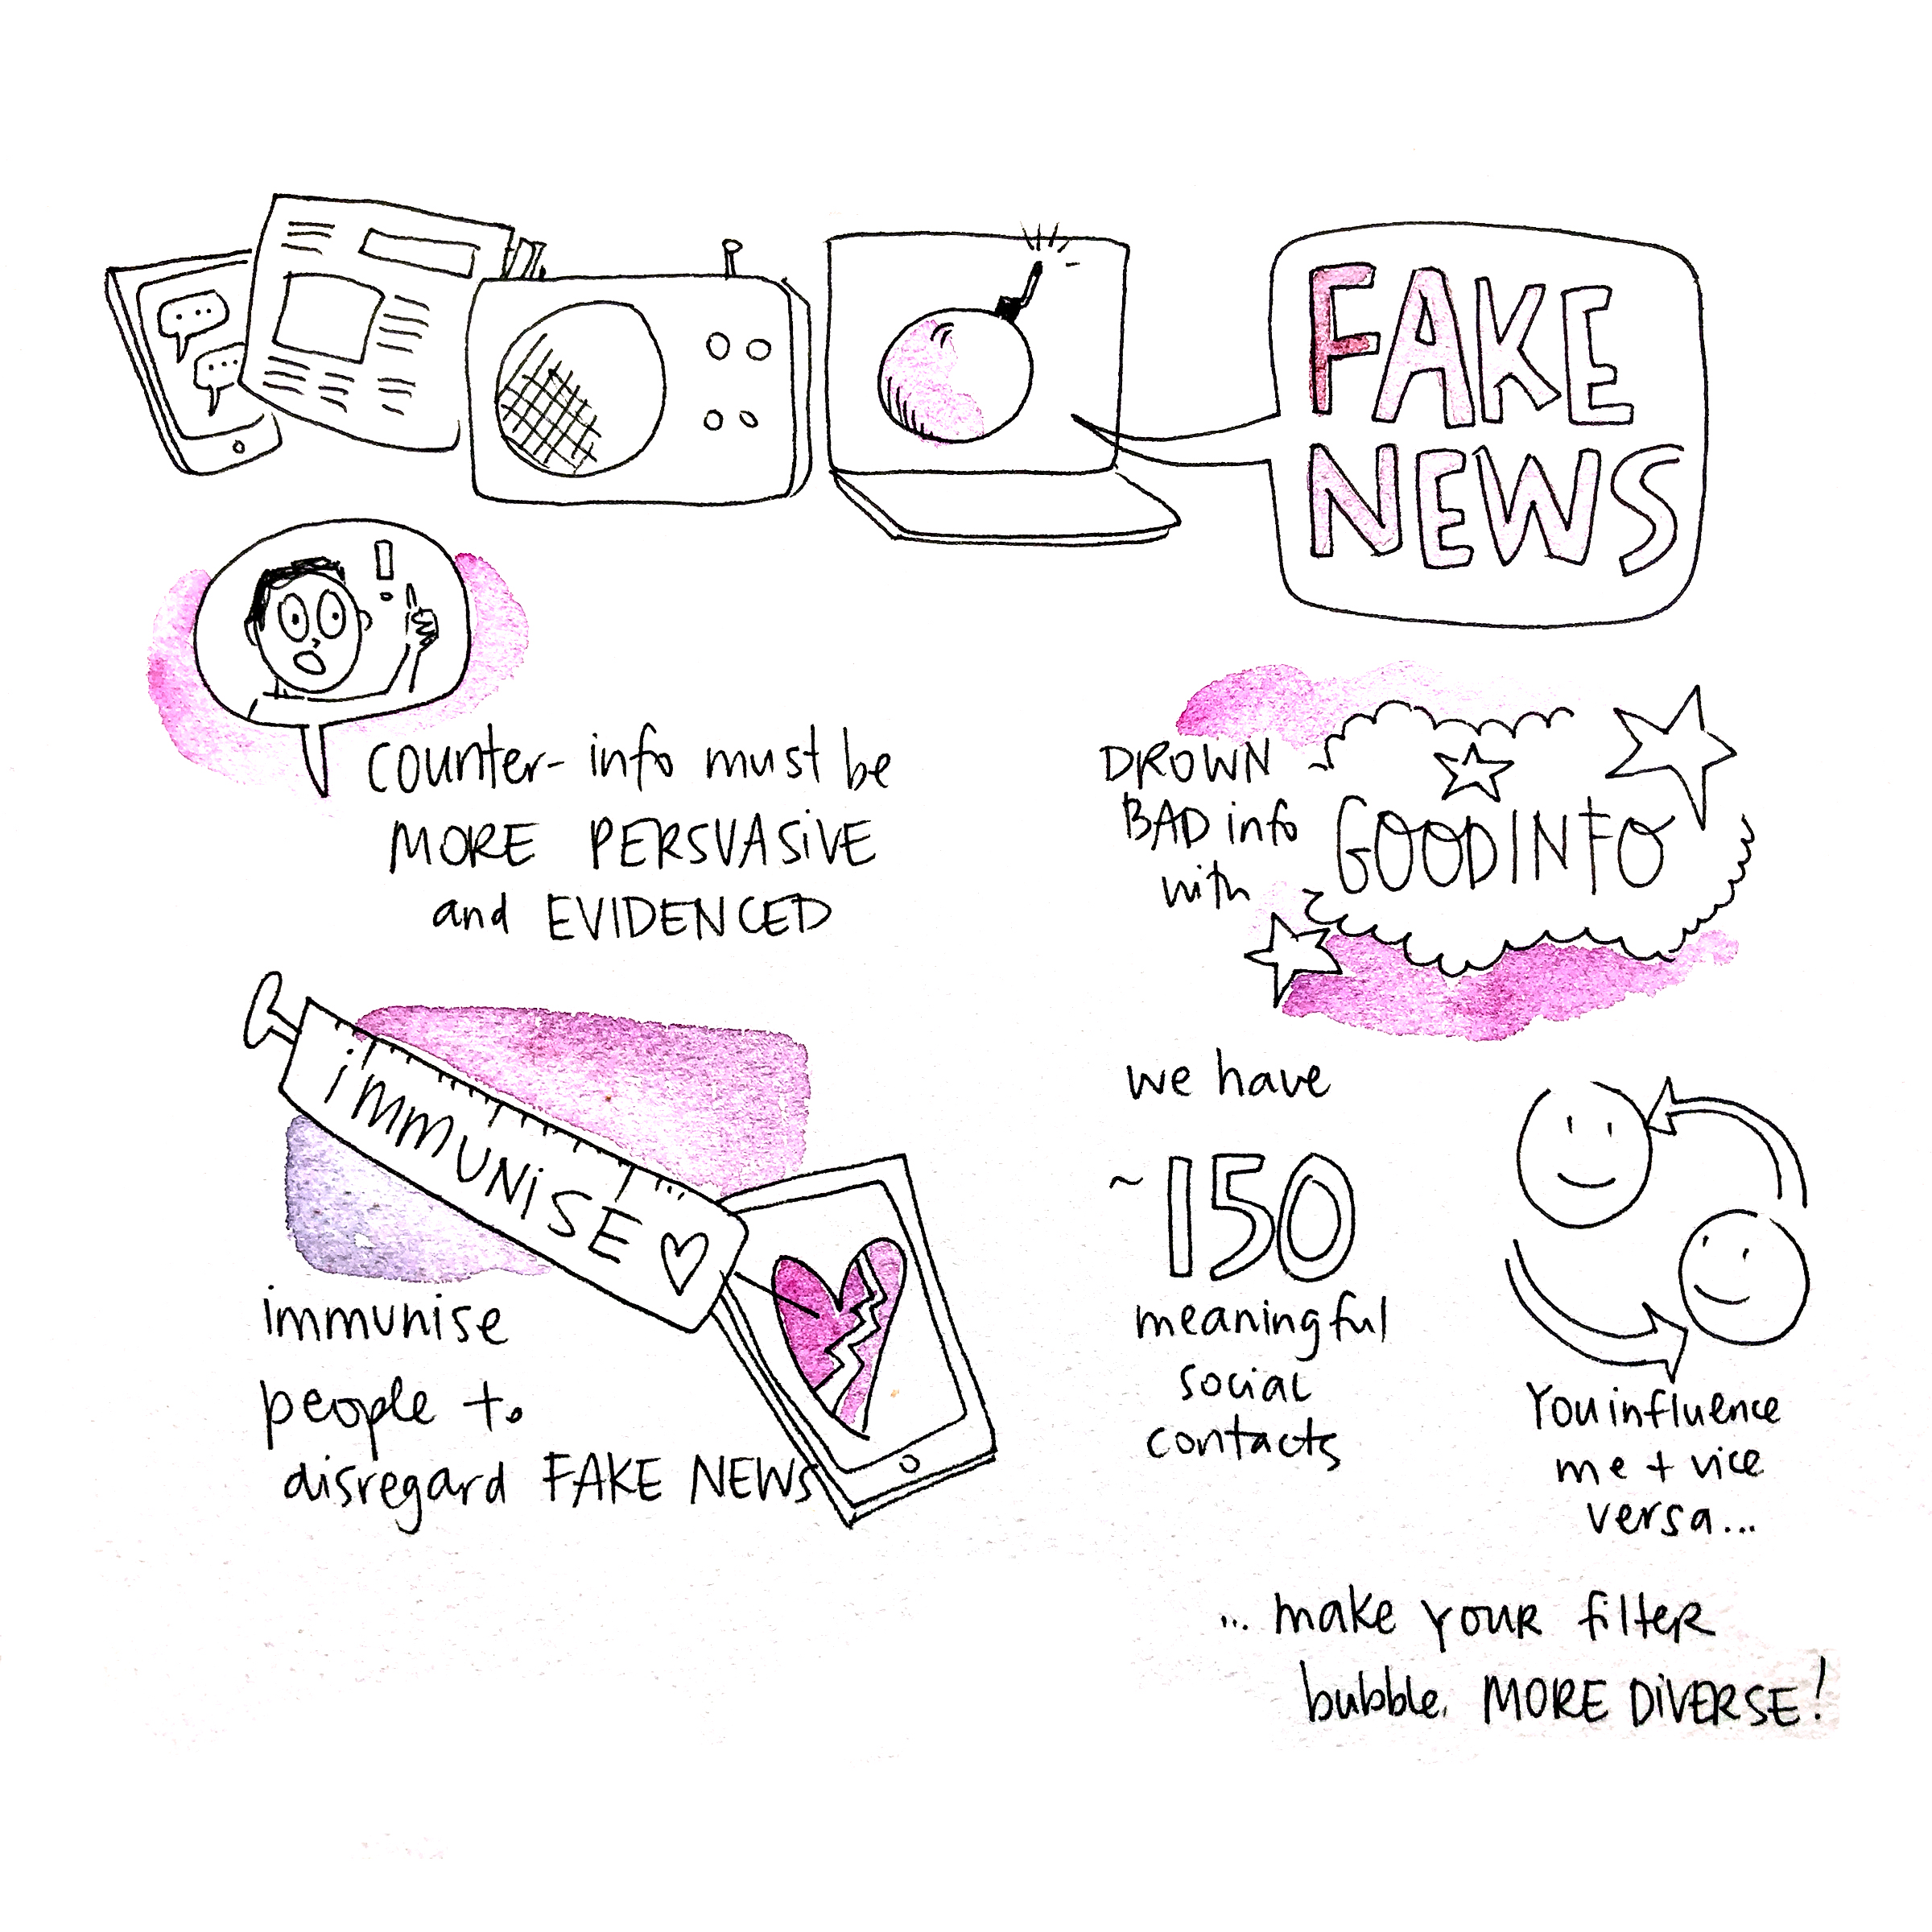 FAKE
NEWS
counter-info must be
MORE PERSUASIVE
and EVIDENCED
DROWN
BAD info
with
GOOD INFO
iMMUNiSE
immunise
people to
disregard FAKE NEWS
we have
~150
meaningful
social
contacts
You influence
me + vice
versa...
... make your filter
bubble. MORE DiVERSE!